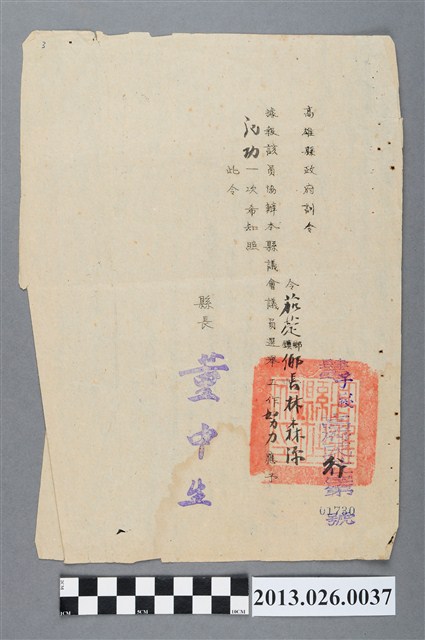 高雄縣政府訓令
肆子 字第 01730 號
令茄萣鄉鄉長林森源
據報該員協辦本縣議會議員選舉工作努力應予
記功一次希知照
此令
縣長 董中生
3
2013.026.0037
1CM 5CM 10CM